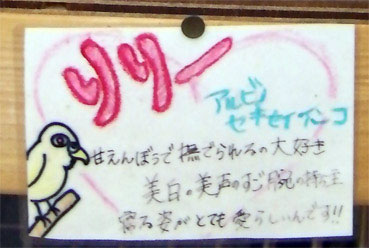 りりー
アルビノ
セキセイインコ
甘えんぼうで撫でられるの大好き
美白の美声のすご腕の持ち主
寝る姿がとても愛らしいんです!!